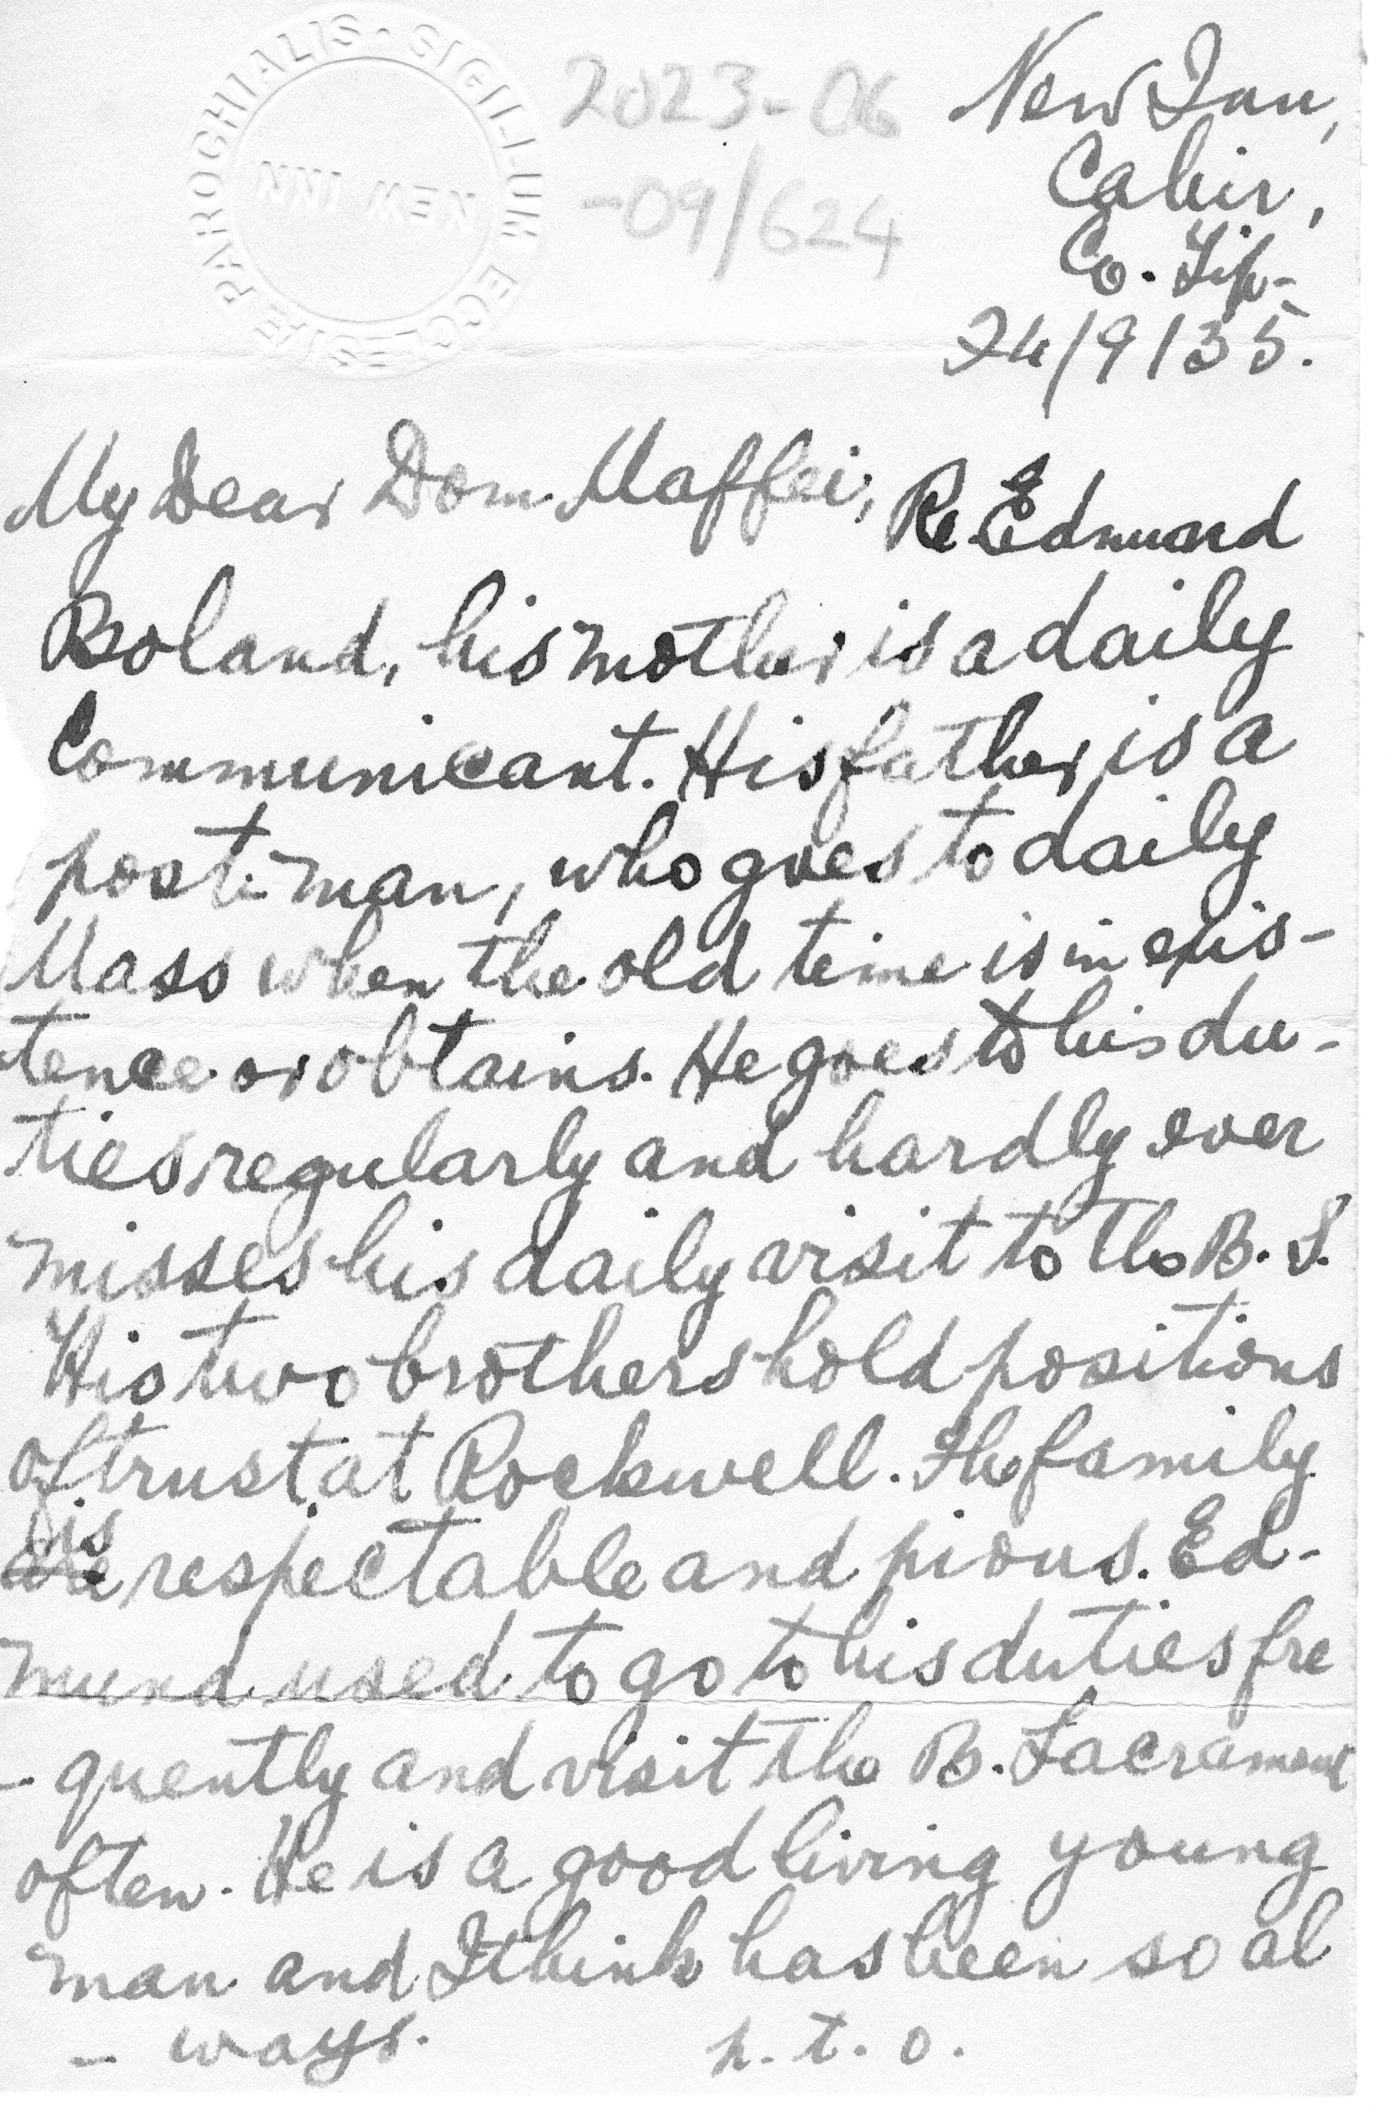 SIGILLUM ECCLESIÆ PAROCHIALIS ·
NEW INN
2023-06
-09/624
New Inn,
Cahir,
Co. Tip-
24/9/35.
My Dear Dom Maffei, Re Edmund
Boland, his mother is a daily
Communicant. His father is a
post-man, who goes to daily
Mass when the old time is in exis-
tence or obtains. He goes to his du-
ties regularly and hardly ever
misses his daily visit to the B. S.
His two brothers hold positions
of trust at Rockwell. The family
is
are respectable and pious. Ed-
mund used to go to his duties fre
- quently and visit the B. Sacrament
often. He is a good living young
man and I think has been so al
- ways. p. t. o.